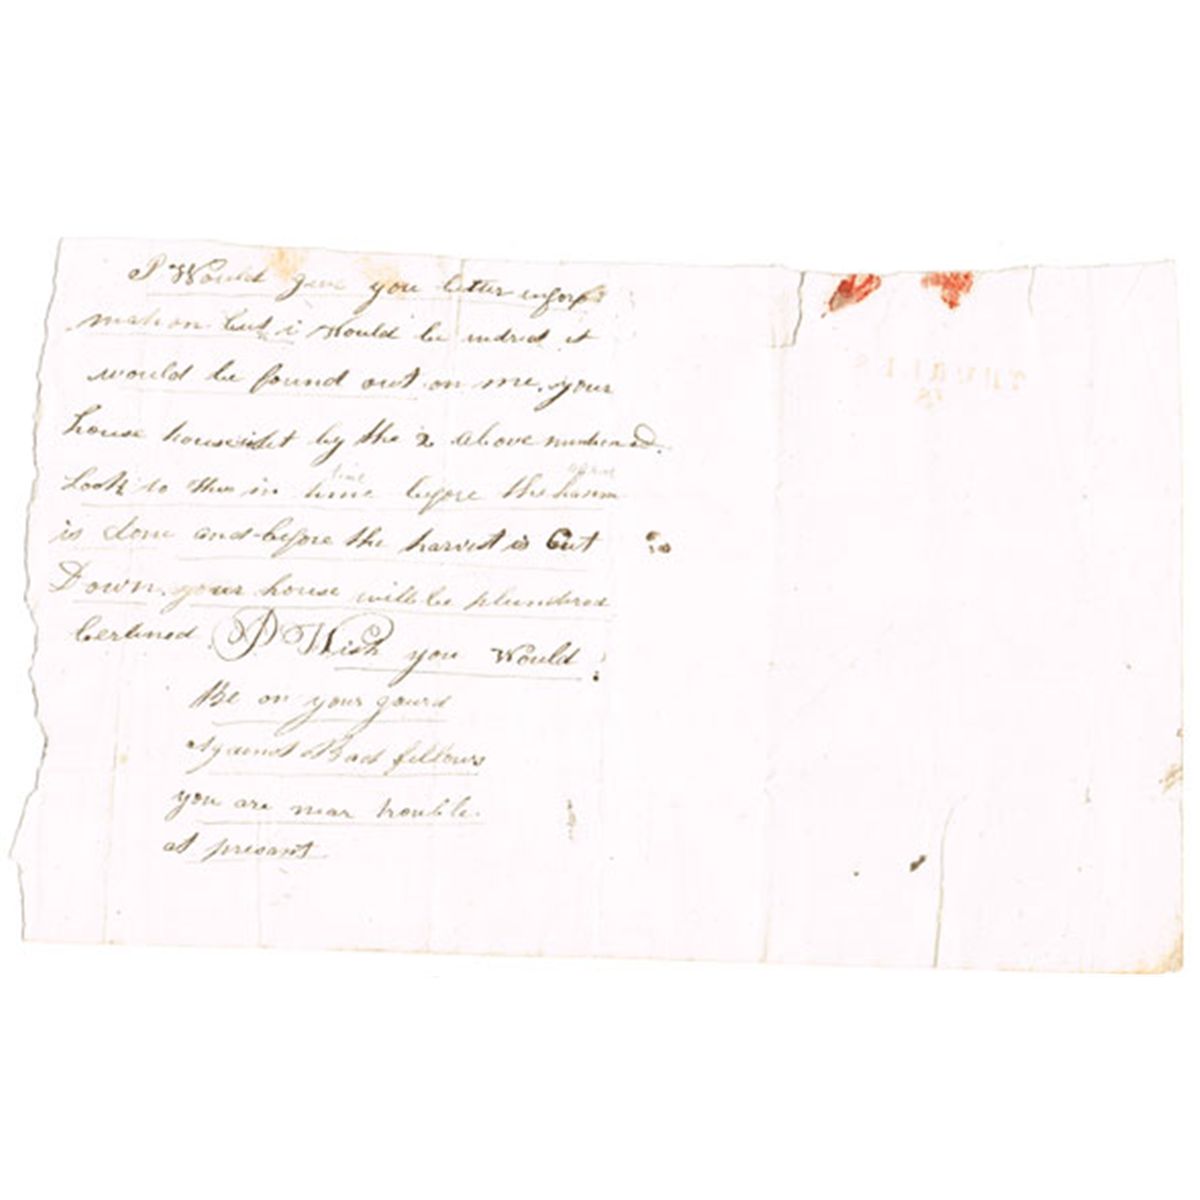 I Would give you better infor
mation but i Would be
would be found out on me, your
house by the 2 above
Look to this in time before the harm
time
is done and before the harvest is Cut
Down. your house will be plundered
I Wish you Would
Be on your gourd
Against Bad fellows
you are near trouble
at presant
THURLES